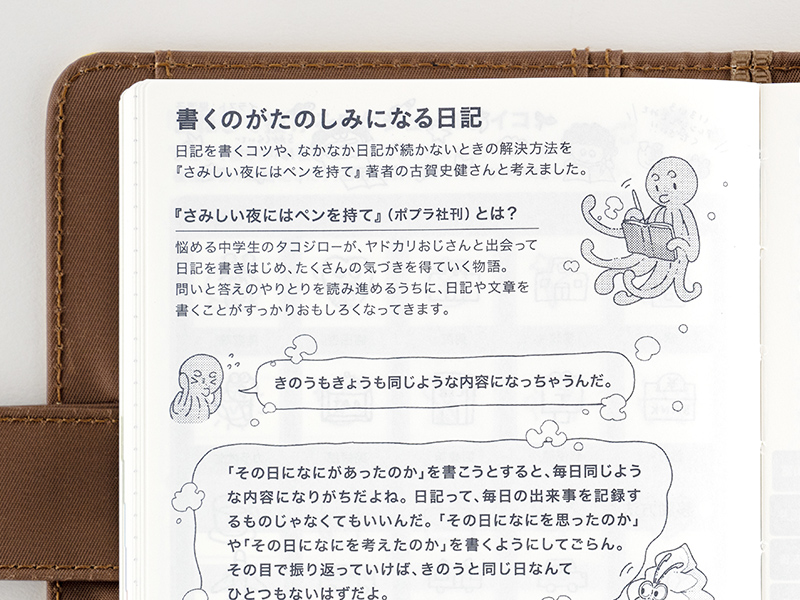 書くのがたのしみになる日記
日記を書くコツや、なかなか日記が続かないときの解決方法を
『さみしい夜にはペンを持て』著者の古賀史健さんと考えました。
『さみしい夜にはペンを持て』(ポプラ社刊)とは?
悩める中学生のタコジローが、ヤドカリおじさんと出会って
日記を書きはじめ、たくさんの気づきを得ていく物語。
問いと答えのやりとりを読み進めるうちに、日記や文章を
書くことがすっかりおもしろくなってきます。
きのうもきょうも同じような内容になっちゃうんだ。
「その日になにがあったのか」を書こうとすると、毎日同じよう
な内容になりがちだよね。日記って、毎日の出来事を記録す
るものじゃなくてもいいんだ。「その日になにを思ったのか」
や「その日になにを考えたのか」を書くようにしてごらん。
その目で振り返っていけば、きのうと同じ日なんて
ひとつもないはずだよ。